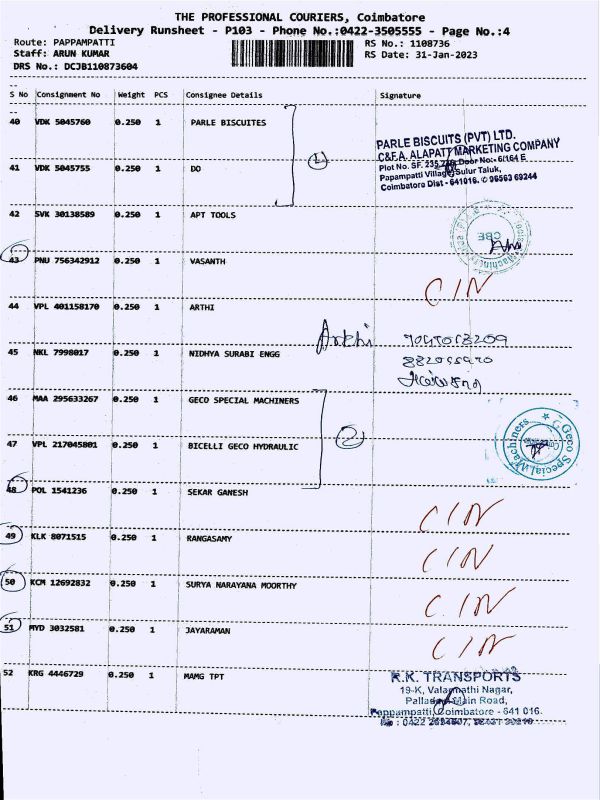 THE PROFESSIONAL COURIERS, Coimbatore
Delivery Runsheet - P103 - Phone No.:0422-3505555 - Page No.:4
Route: PAPPAMPATTI RS No.: 1108736
Staff: ARUN KUMAR RS Date: 31-Jan-2023
DRS No.: DCJB110873604
S No Consignment No Weight PCS Consignee Details Signature
40 VDK 5045760 0.250 1 PARLE BISCUITES
PARLE BISCUITS (PVT) LTD.
C&F.A. ALAPATT MARKETING COMPANY
Plot No. SF. Door No:- 6/164 E
Papampatti Village, Sulur Taluk,
Coimbatore Dist - 641016. ✆ 96563 69244
41 VDK 5045755 0.250 1 DO
42 SVK 30138589 0.250 1 APT TOOLS
CBE
43 PNU 756342912 0.250 1 VASANTH
C/N
44 VPL 401158170 0.250 1 ARTHI
Arthi
45 NKL 7998017 0.250 1 NIDHYA SURABI ENGG
46 MAA 295633267 0.250 1 GECO SPECIAL MACHINERS
2
Geco Special Machiners
47 VPL 217045801 0.250 1 BICELLI GECO HYDRAULIC
48 POL 1541236 0.250 1 SEKAR GANESH
C/N
49 KLK 8071515 0.250 1 RANGASAMY
C/N
50 KCM 12692832 0.250 1 SURYA NARAYANA MOORTHY
C/N
51 MYD 3032581 0.250 1 JAYARAMAN
C/N
52 KRG 4446729 0.250 1 MAMG TPT
R.K. TRANSPORTS
19-K, Nagar,
Main Road,
Pappampatti, Coimbatore - 641 016.